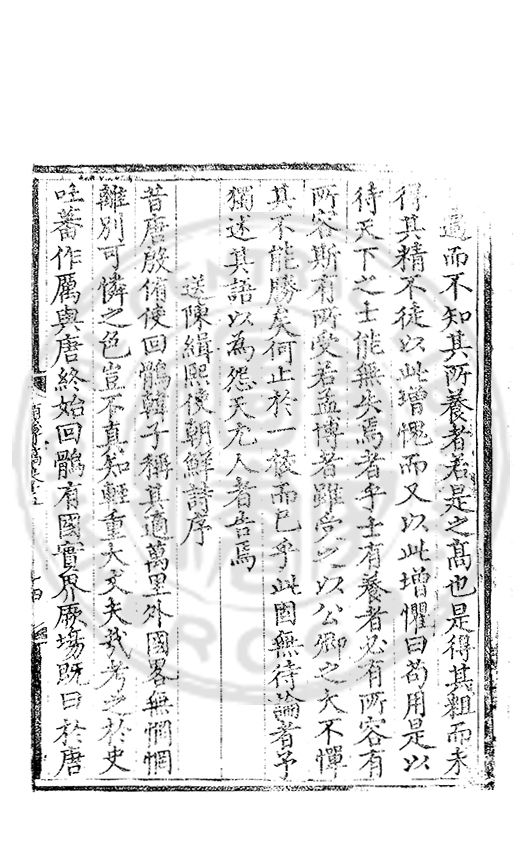 過而不知其所養者若是之髙也是得其粗而未
得其精不徒以此增愧而又以此增懼曰苟用是以
待天下之士能無失焉者乎士有養者必有所容有
所容斯有所受若孟博者雖嘗之以公卿之大不憚
其不能勝矣何止於一後而已乎此固無待論者予
獨述其語以為怨天尤人者告焉
送陳緝熙使朝鮮詩序
昔唐殷侑使回鶻韓子稱其適萬里外國畧無惘惘
離別可憐之色豈不真知輕重大丈夫哉考之於史
吐蕃作厲與唐終始回鶻有國實界厥場既曰於唐